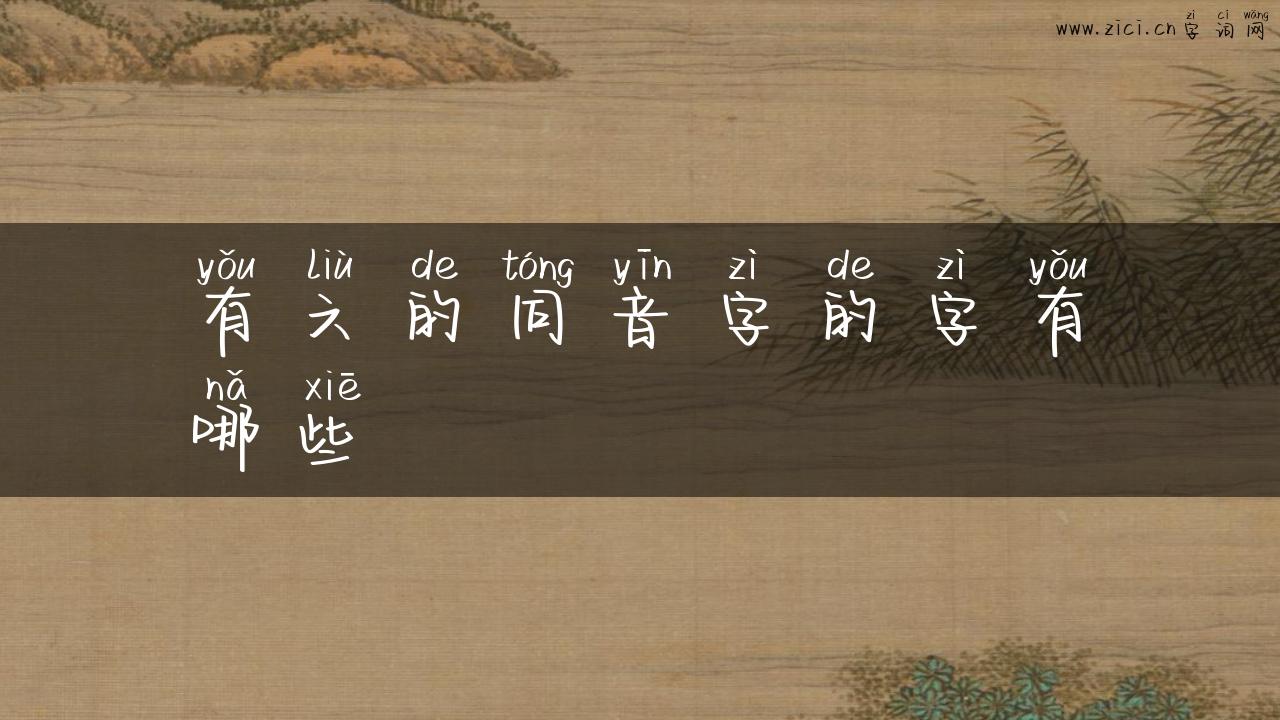 zì cí wǎng
www.zici.cn 字 词 网
yǒu liù de tóng yīn zì de zì yǒu
有 六 的 同 音 字 的 字 有
nǎ xiē
哪 些